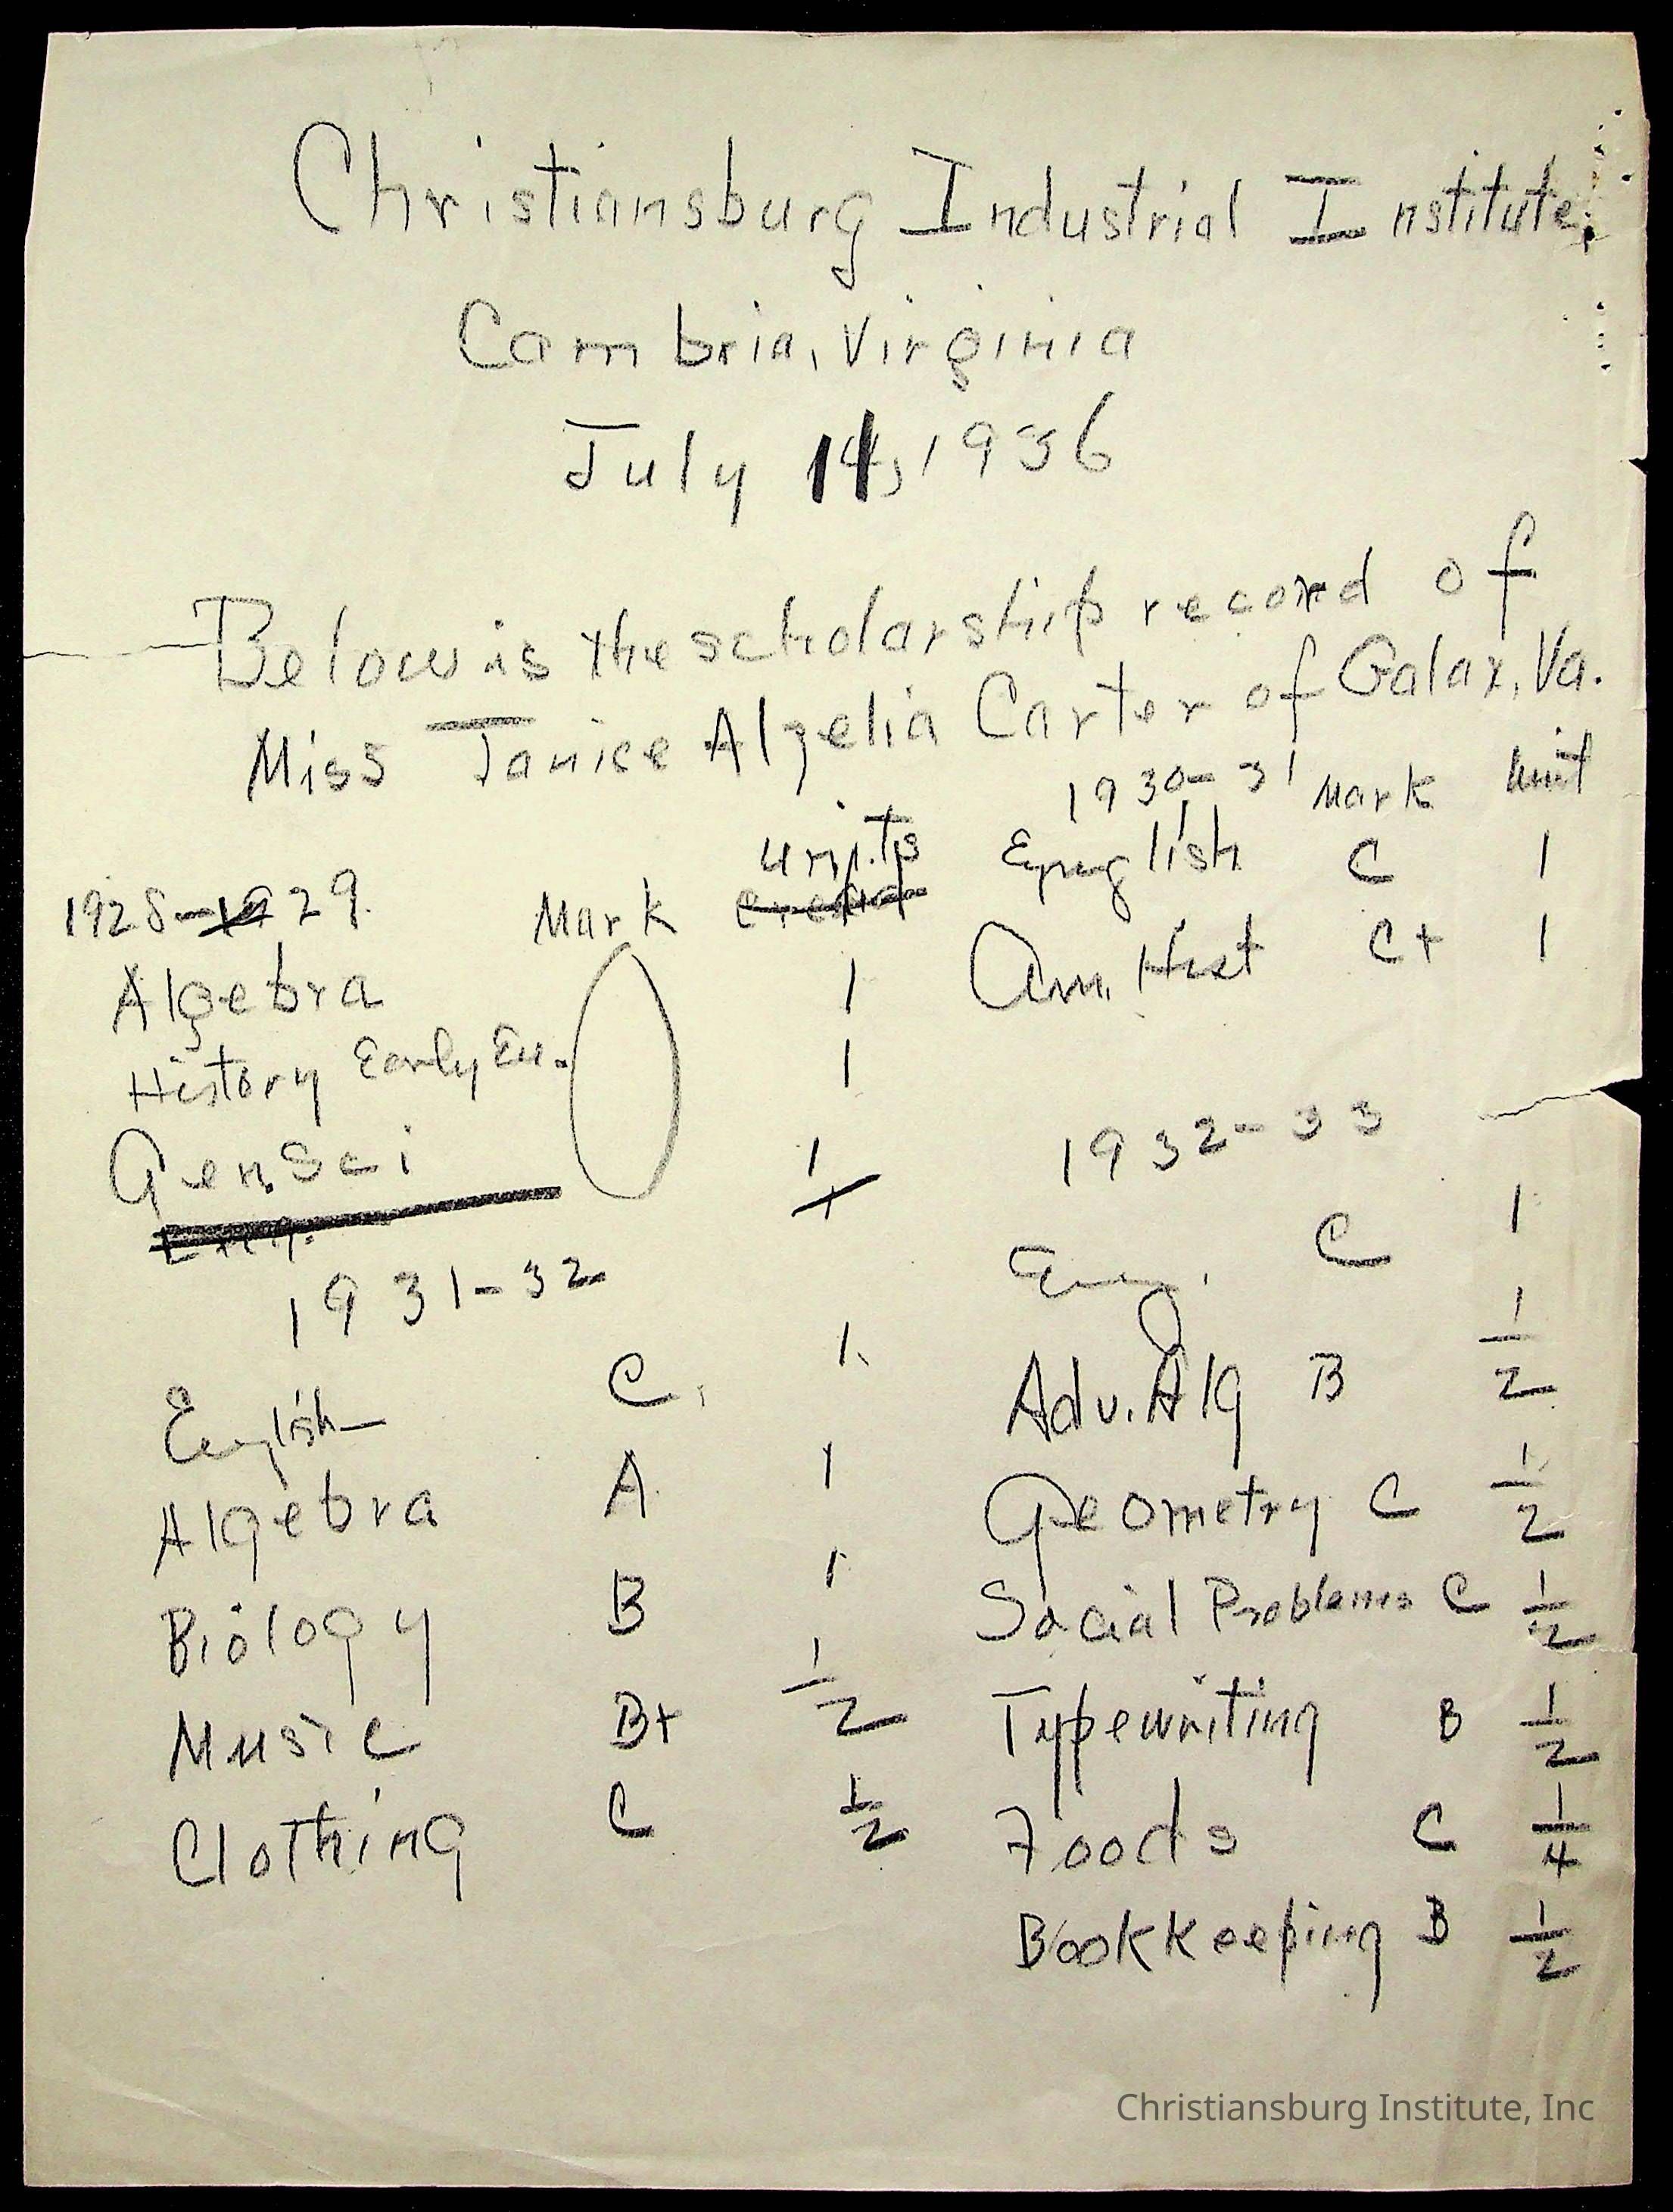 Christiansburg Industrial Institute,
Cambria, Virginia
July 14, 1936
Below is the scholarship record of
Miss Janice Algelia Carter of Galax, Va.
1928-29. Mark Units
Algebra 1
History Early Eu. 1
Gen. Sci 1
1931-32
English C. 1
Algebra A 1
Biology B 1
Music B+ 1/2
Clothing C 1/2
1930-31 Mark Unit
English C 1
Am. Hist C+ 1
1932-33
Eng. C 1
Adv. Alg B 1/2
Geometry C 1/2
Social Problems C 1/2
Typewriting B 1/2
Foods C 1/4
Bookkeeping B 1/2
Christiansburg Institute, Inc